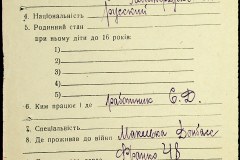 4. Національність русский
5. Родинний стан
при ньому діти до 16 років:
1)
2)
3)
4)
5)
6. Ким працює і де работник С.Д.
7. Спеціальність
8. Де проживав до війни Макеевка Донбасс
Франко 48